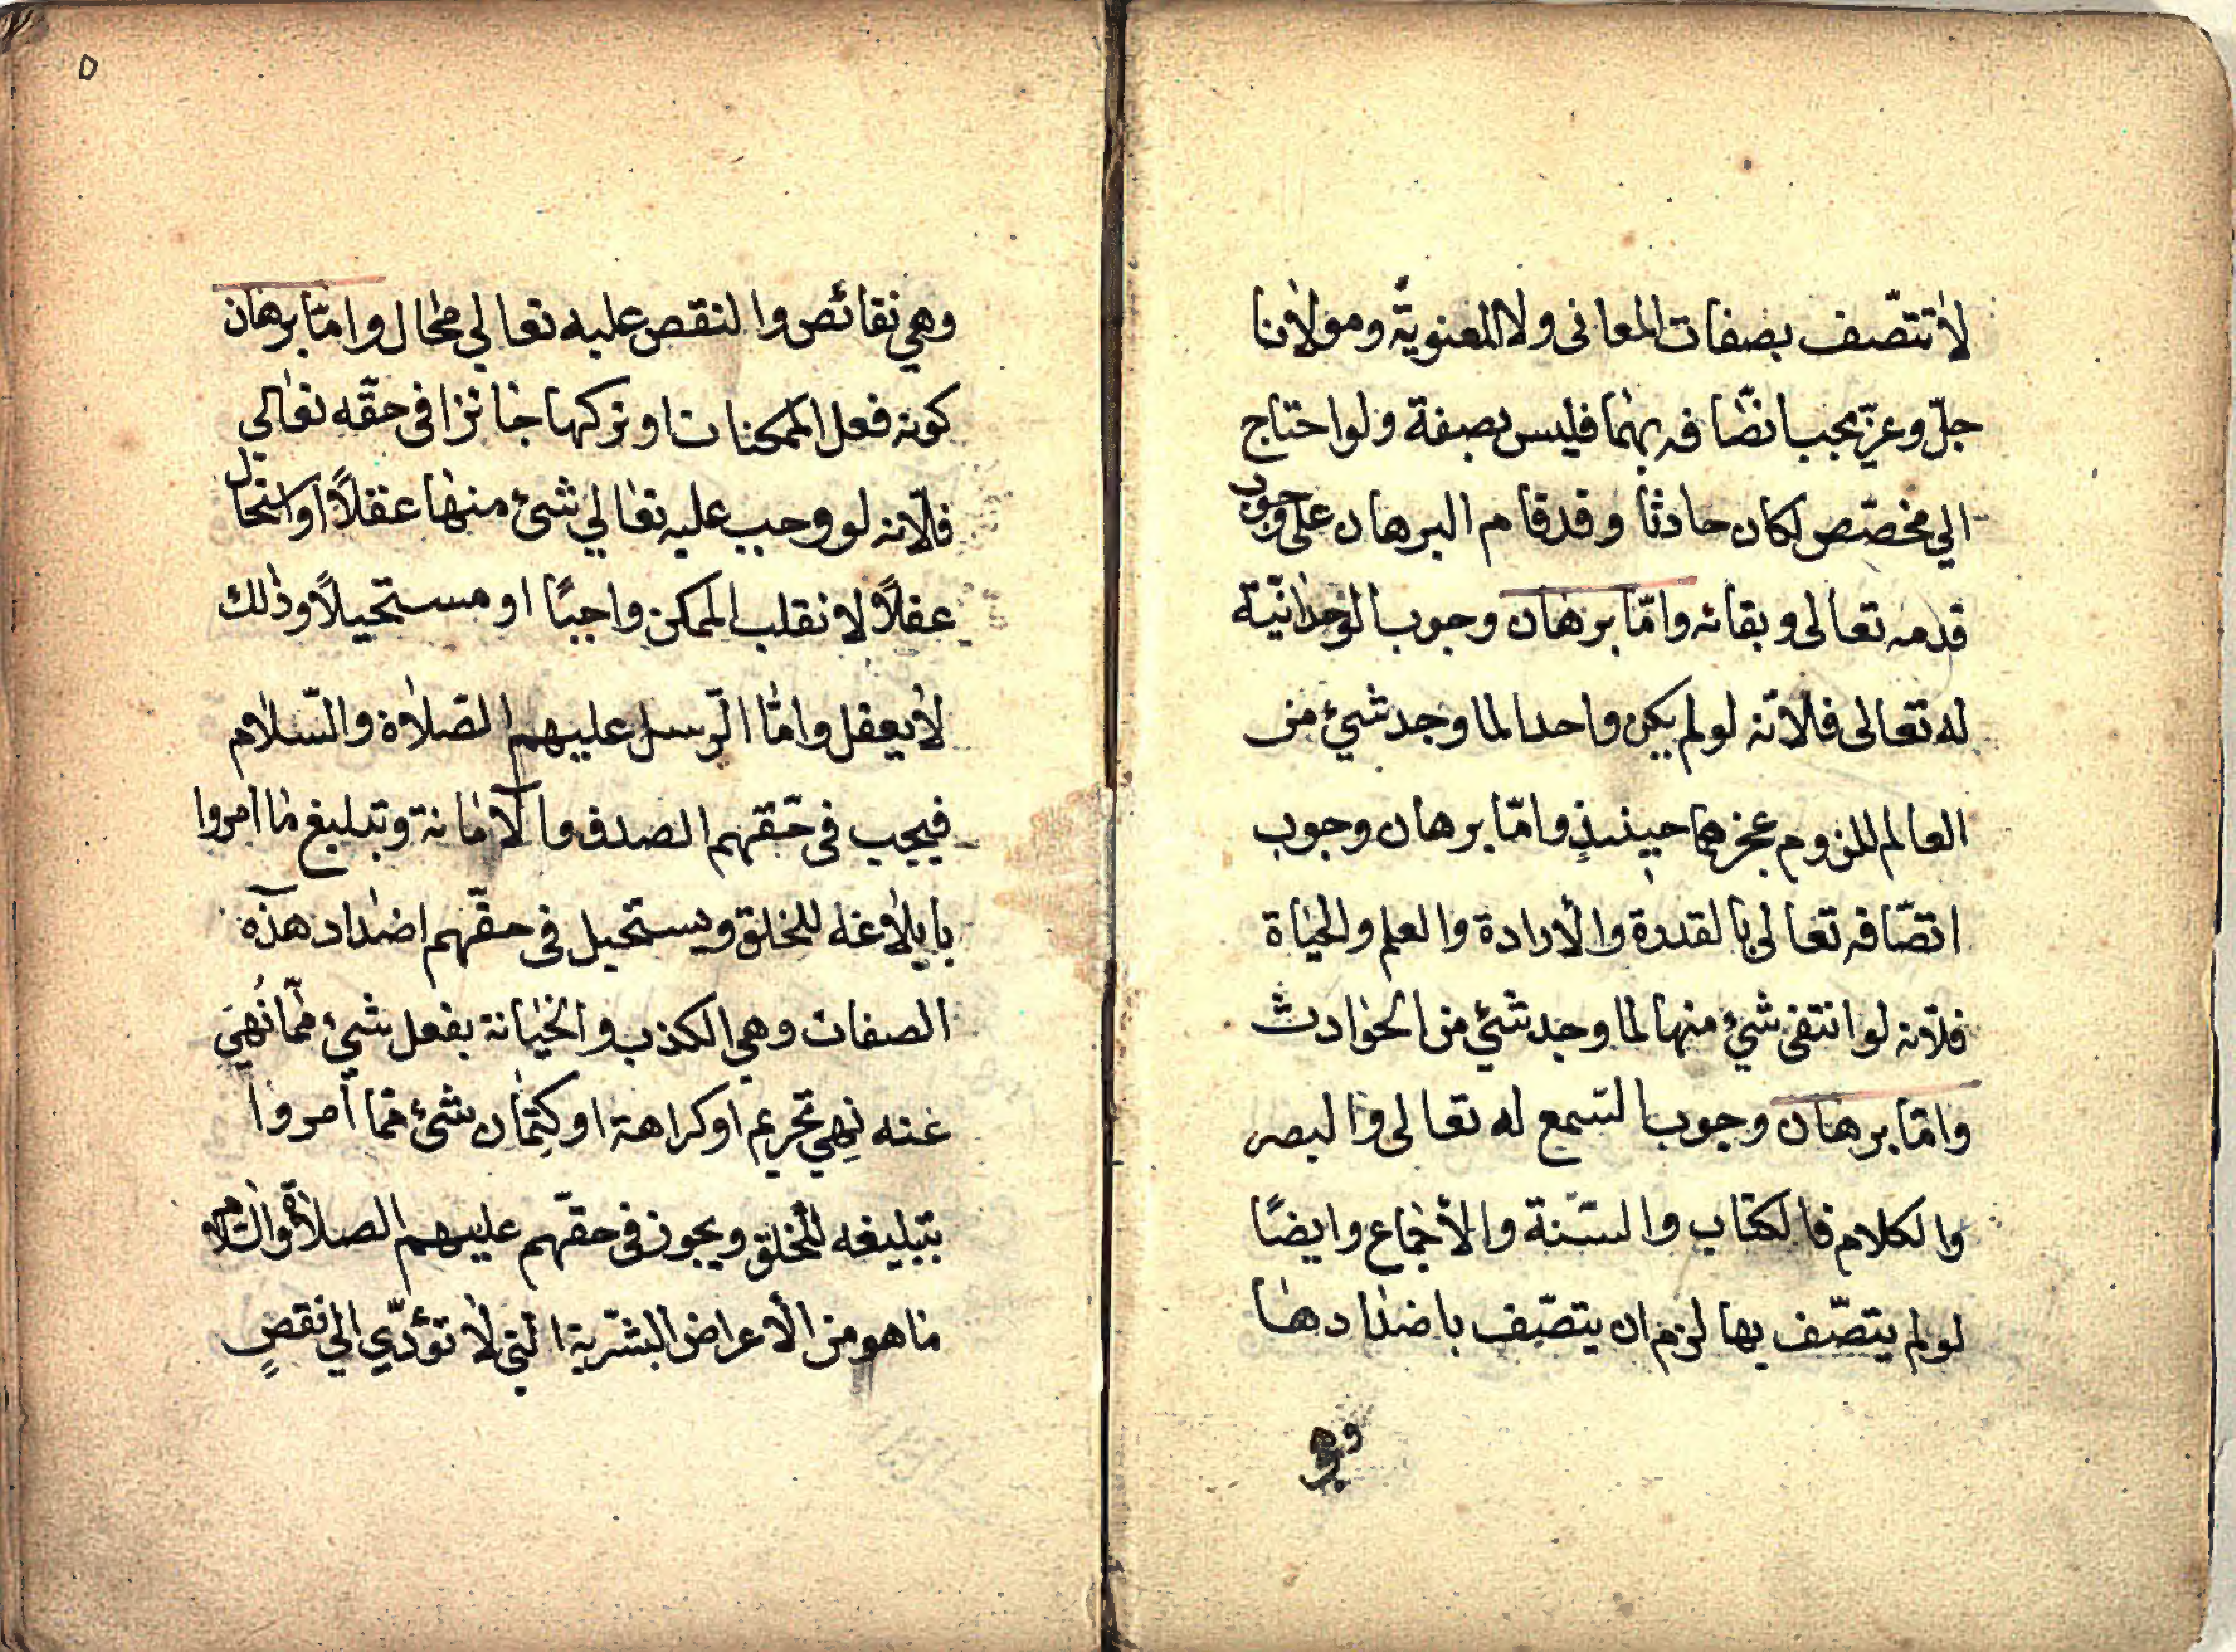 لا تتّصف بصفات المعانى ولا المعنويّة ومولانا
جلّ وعزّ يجب اتّصافه بهما فليس بصفة ولو احتاج
الي مخصّص لكان حادثا وقد قام البرهان على وجوب
قدمه تعالى وبقائه وامّا برهان وجوب الوحدانيّة
له تعالى فلانّه لو لم يكن واحدا لما وجد شيء من
العالم للزوم عجزهما حينئذٍ وامّا برهان وجوب
اتصّافه تعالى بالقدرة والأرادة والعلم والحياة
فلأنه لو انتفى شيء منها لما وجد شئ من الحوادث
وامّا برهان وجوب السّمع له تعالى والبصر
والكلام فالكتاب والسّنة والأجماع وايضًا
لو لم يتصّف بها لزم ان يتصّف باضدادها
وهي
٥
وهي نقائص والنقص عليه تعالي محال وامّا برهان
كونه فعل الممكنات او تركها جائزا فى حقّه تعالي
فلأنه لو وجب عليه تعالي شئ منها عقلاً او استحال
عقلاً لانقلب الممكن واجبًا او مستحيلاً وذلك
لا يعقل وامّا الرّسل عليهم الصلاة والسّلام
فيجب فى حقّهم الصدق والأمانة وتبليغ ما امروا
بابلاغه للخلق ويستحيل فى حقّهم اضداد هذه
الصفات وهي الكذب والخيانة بفعل شيء ممّا نُهيَ
عنه نهي تحريم او كراهة او كتمان شئ ممّا امروا
بتبليغه للخلق ويجوز فى حقّهم عليهم الصلاة والسّلام
ما هو من الأعراض البشريّة التي لا تؤدّي الي نقصٍ